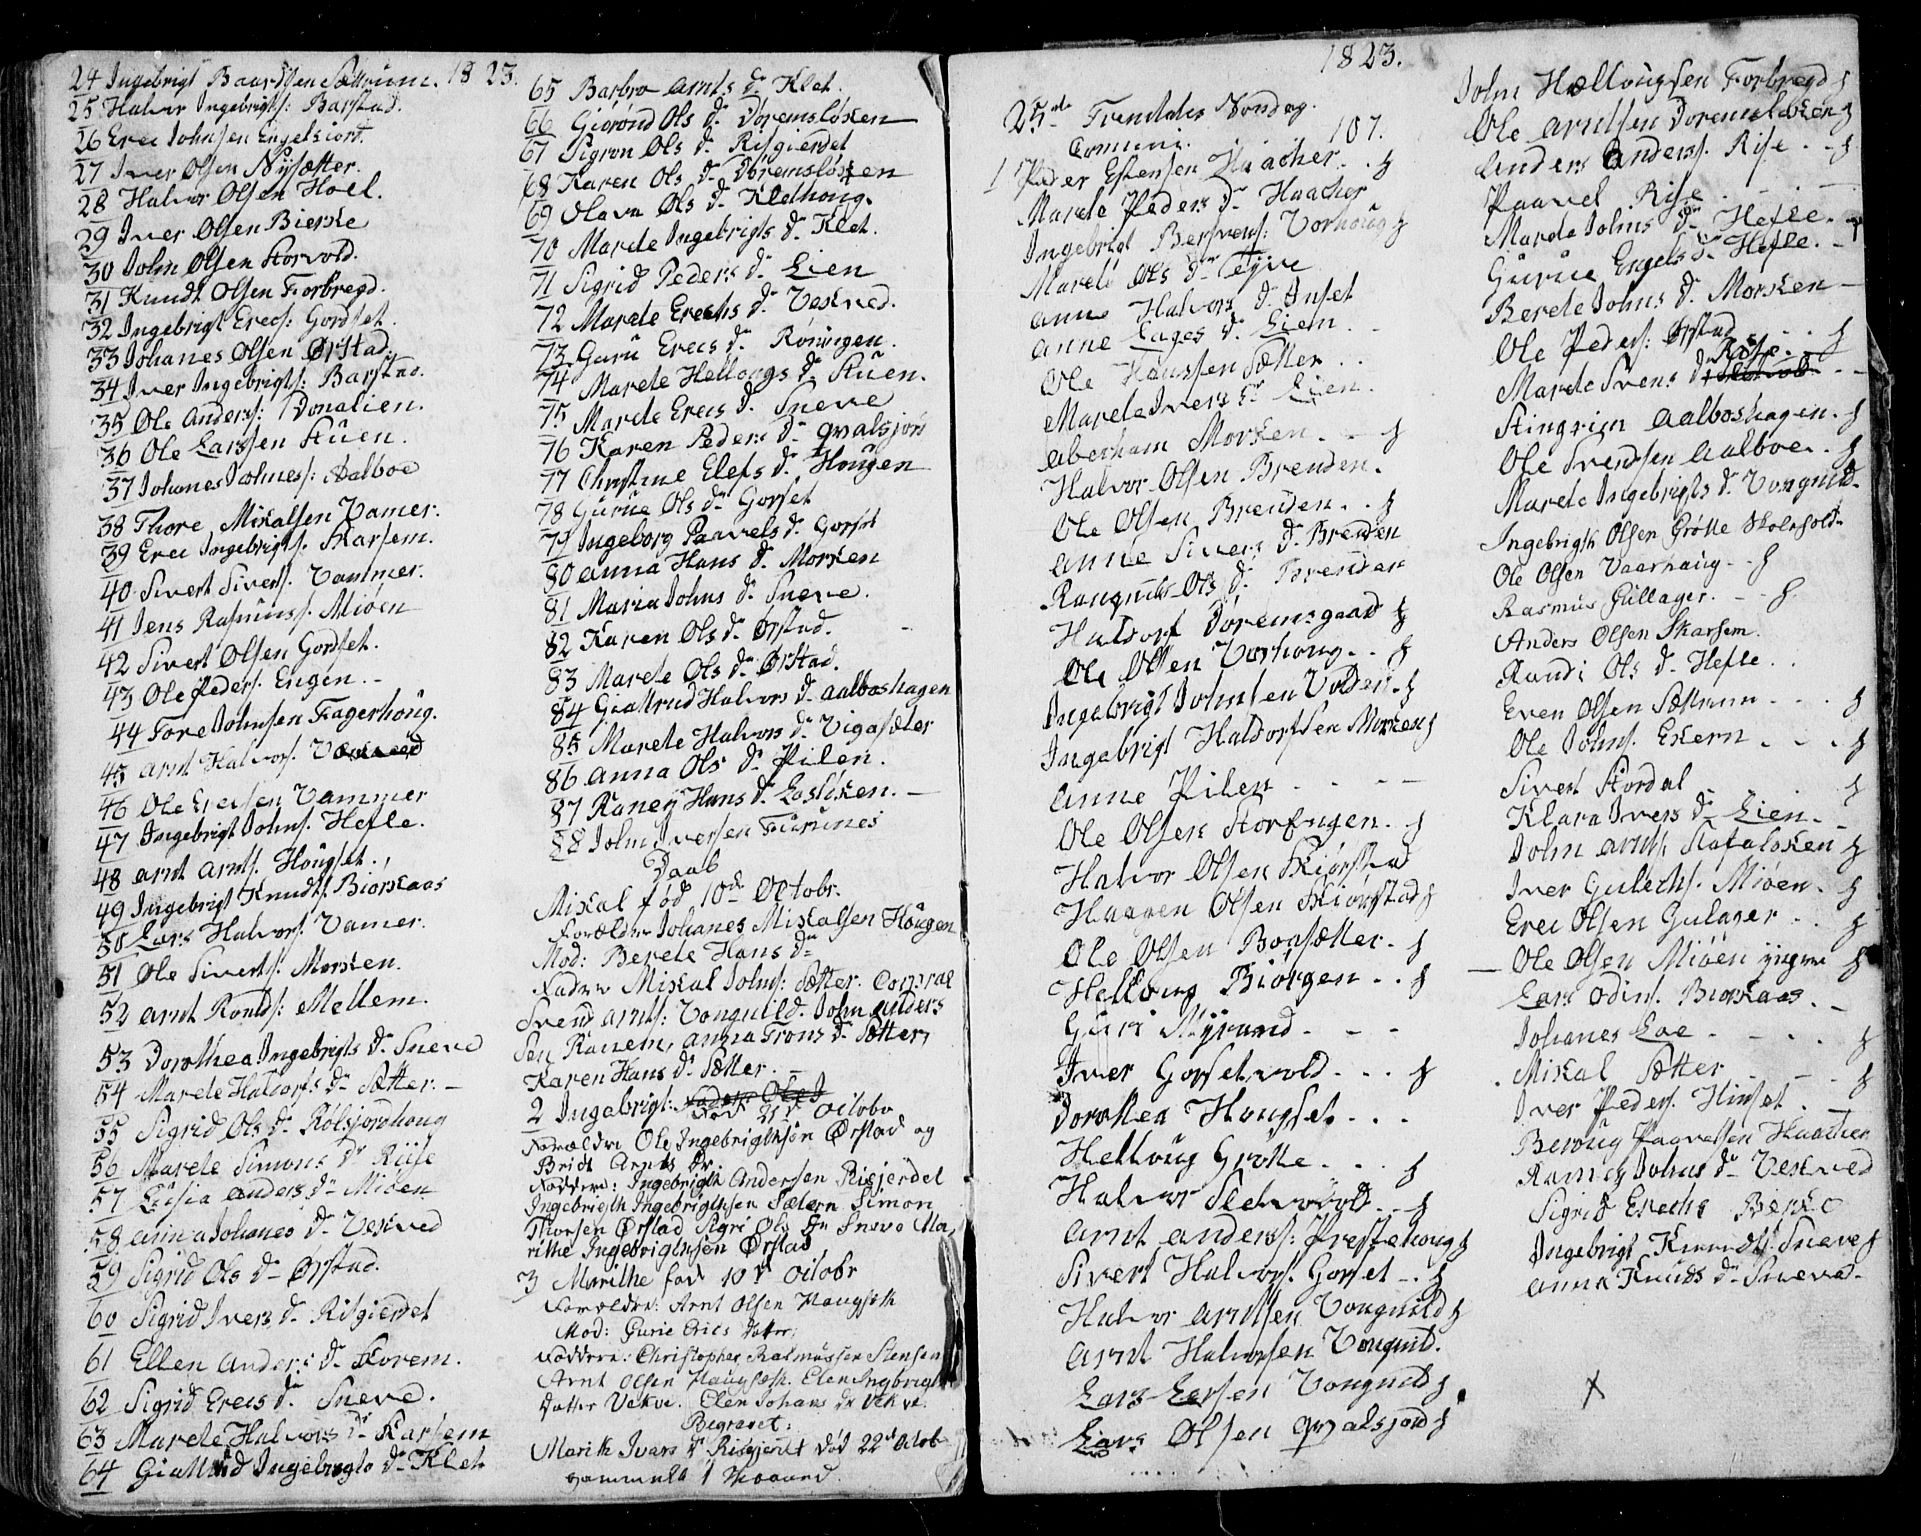 24 Ingebrigt Baardsen Sættrum. 1823.
25 Halvor Ingebrigts: Barstad.
26 Erec Johnsen Engelsiord.
27 Iver Olsen Nysætter.
28 Halvor Olsen Hoel.
29 Iver Olsen Bierke
30 John Olsen Storvold.
31 Knudt Olsen Forbregd.
32 Ingebrigt Erecs: Gordset.
33 Johanes Olsen Ørstad
34 Iver Ingebrigts: Barstad.
35 Ole Anders: Donalien.
36 Ole Larssen Stuen.
37 Johanes Johnes: Aalboe
38 Thore Mikalsen Vamer.
39 Erec Ingebrigts. Skarsem.
40 Sivert Sivers. Vammer.
41 Jens Rasmuss. Miøen
42 Sivert Olsen Gordset.
43 Ole Peders. Engen.
44 Tore Johnsen Fagerhoug.
45 Arnt Halvors.
46 Ole Erecsen Vammer
47 Ingebrigt Johns. Hefle.
48 Arnt Arnts. Hougset.
49 Ingebrigt Knudts. Biørkaas
50 Lars Halvors. Vamer.
51 Ole Siverts: Morken.
52 Arnt Ronlds: Mellem.
53 Dorothea Ingebrigts Dr Sneve
54 Marete Haldors Dr Sætter.
55 Sigrid Ols Dr Rolsjordhoug
56 Marete Simons Dr Riise
57 Lusia Anders Dr Mioen
58 Anna Johanes Dr Vekved
59 Sigrid Ols Dr Ørstad.
60 Sigrid Ivers Dr Risgierdet
61 Ellen Anders Dr Storem.
62 Sigrid Erecs Dr Sneve.
63 Marete Halvors Dr Karsem
64 Giattrud Ingebrigts Dr Klet
65 Barbro Arnts Dr Klet.
66 Giørønd Ols Dr Doremsløken
67 Sigron Ols Dr Risgierdet
68 Karen Ols Dr Døremsløkken
69 Olava Ols Dr Klethoug.
70 Marete Ingebrigts Dr Klet.
71 Sigrid Peders Dr Lien
72 Marete Erechs Dr Vekved.
73 Guru Erecs Dr Rønningen.
74 Marete Hellougs Dr Stuen.
75 Marete Erecs Dr Sneve
76 Karen Peders Dr Gvalsjord
77 Christine Elefs Dr Hougen
78 Gurue Ols Dr Gorset
79 Ingeborg Paavels Dr Gorset
80 Anna Hans Dr Morken
81 Maria Johns Dr Sneve.
82 Karen Ols Dr Ørstad.
83 Marete Ols Dr Ørstad.
84 Giattrud Halvors Dr Aalboshagen
85 Marete Halvors Dr Vigasæter
86 Anna Ols Dr Pilen.
87 Raney Hans Dr Løsliken.
88 John Iversen Furunes
Daab
Mikal fød 10de Octobr.
Forældre Johanes Mikalsen Hougen
Mod: Berete Hans Dr
Fadere Mikal Johns: Sætter. Corpral
Svend Arnts: Vongnild. John Anders
Sen Ranem, Anna Trons Dr Sætter,
Karen Hans Dr Sætter.
2 Ingebrigt: Fadere Ole I
Fød 21d Octobr
Forældre Ole Ingebrigtsøn Ørstad og
Bridt Arnts Dr
Faddere: Ingebrigt Andersen Risjerdet
Ingebrigt Ingebrigtsen Sætern Simon
Thorsen Ørstad Sigri Ols Dr Sneve Ma,
rithe Ingebrigtsen Ørstad
3 Marithe fød 10d Octobr
Forældre: Arnt Olsen Haugseth
Mod: Gurie Erics Datter:
Faddere: Christopher Rasmussen Stensen
Arnt Olsen Haugseth. Elen Ingbrigts
Datter Vekve. Elen Johans Dr Vekve.
Begravet:
Marith Ivars Dr Risjerdet død 22de Octob
gammuld 1 Maaned
1823.
25de Trenitatis Søndag.
Comuni. 107.
1 Peder Estensen Haacker.
Marete Peders Dr Haacker
Ingebrigt Bersvens: Vorhoug
Marete Ols Dr Tyve
Anne Halvors Dr Inset
Anne Lages Dr Liem.
Ole Hanssen Sætter
Marete Ivers Dr Lien.
Aberham Morken.
Halvor Olsen Brenden.
Ole Olsen Brenden.
Anne Sivers Dr Brenden
Rangnild Ols Dr Brenden
Haldorf Doremsgaard
Ole Olsen Vorhoug.
Ingebrigt Johnsen Volden.
Ingebrigt Haldorfsen Morken
Anne Pilen
Ole Olsen Storengen.
Halvor Olsen Skiørstad
Haagen Olsen Skiørstad
Ole Olsen Bonsætter.
Helloug Biørgen.
Guri Myrund
Iver Gorsetvold.
Dorothea Hougset.
Helloug Grøtte.
Halvor Sletvold.
Arnt Anders: Prestehoug
Sivert Halvors. Gorset.
Halvor Arntsen Vongnild
Arnt Halvorsen Vongnild.
Lars Larsen Vongnild
Lars Olsen Gvalsjord
John Hellougsen Forbregd
Ole Arntsen Doremsløken
Anders Anders. Rise.
Paavel Rise
Marete Johns Dr Hefle.
Gurue Engels Dr Hefle.
Berete Johns Dr Morken
Ole Peders: Ørstad
Rise.
Marete Svens Dr
Stingrim Aalboshagen.
Ole Svendsen Aalboe.
Marete Ingebrigts Dr Vongnild
Ingebrigth Olsen Grøtte Skoleholder
Ole Olsen Vaarhaug
Rasmus Gullager.
Anders Olsen Skarsem.
Randi Ols Dr Hefle.
Even Olsen Sættrum
Ole Johns. Ekern
Sivert Stordal
Klara Ivers Dr Lien.
John Arnts. Stafaløken
Iver Gulechs. Miøen.
Erec Olsen Gulager
Ole Olsen Miøen yngre
Lars Odins. Biørkaas.
Johanes Loe
Mikal Sætter
Iver Peders. Hinset
Beroug Paavelsen Haacker
Ramey Johns Dr Vekved
Sigrid Erechs Berke
Ingebrigt Knudts. Sneve
Anna Knuds Dr Sneve
X